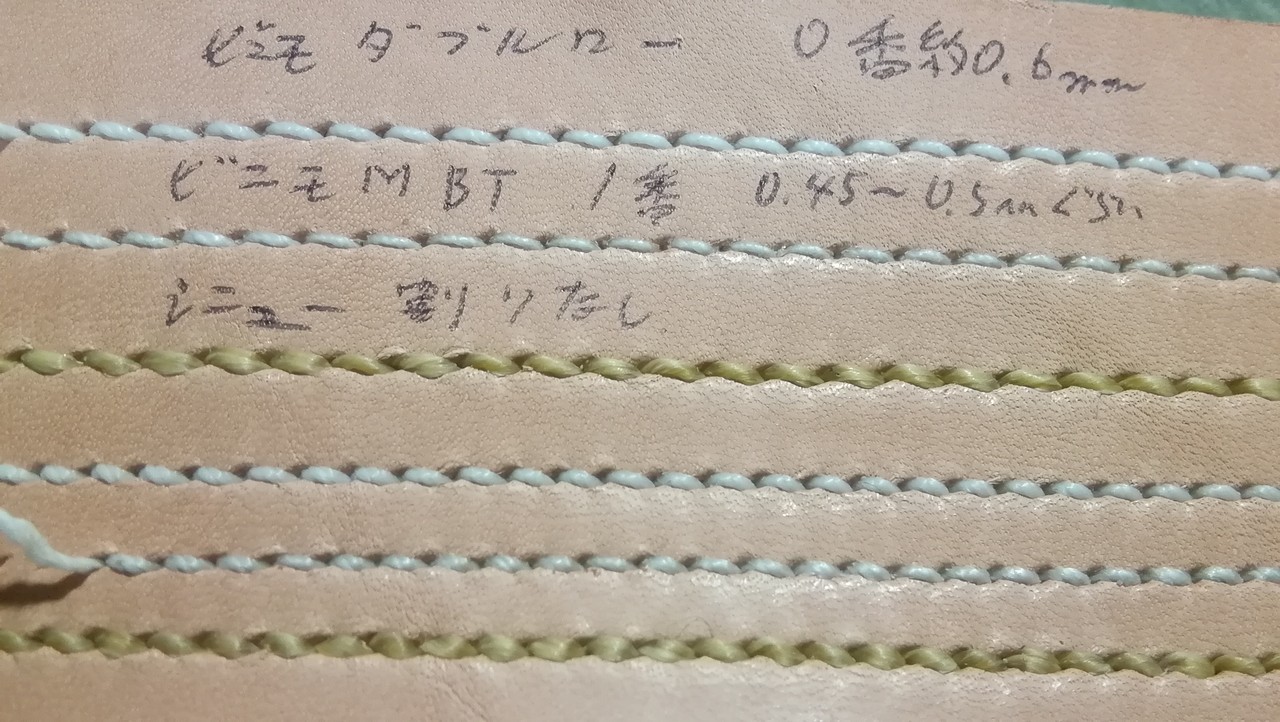 ビニモ ダブルロー 0番約0.6mm
ビニモMBT 1番 0.45〜0.5mmぐらい
シニュー 割りなし